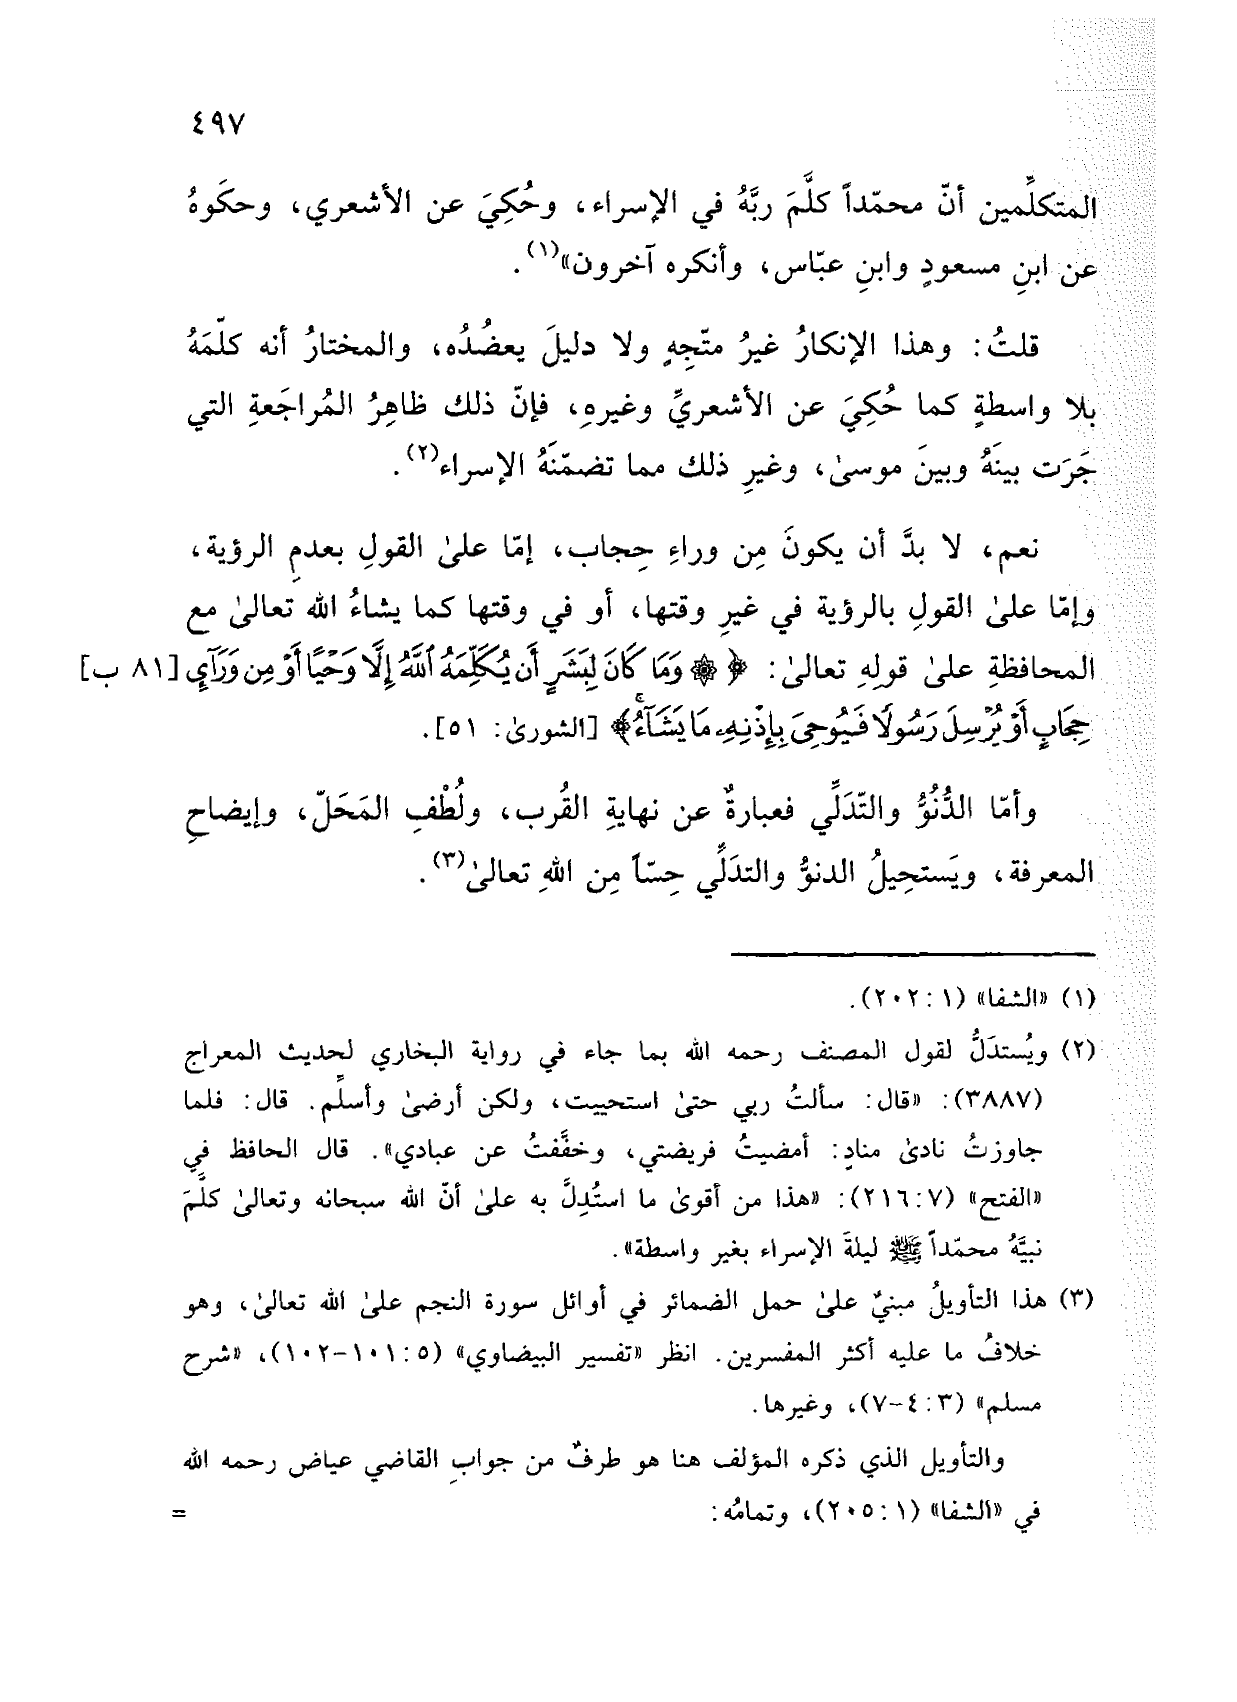 ٤٩٧
المتكلِّمين أنّ محمّداً كلَّمَ ربَّهُ في الإسراء، وحُكِيَ عن الأشعري، وحكَوهُ
عن ابنِ مسعودٍ وابنِ عبّاس، وأنكره آخرون»(١).
قلتُ: وهذا الإنكارُ غيرُ متّجِهٍ ولا دليلَ يعضُدُه، والمختارُ أنه كلّمَهُ
بلا واسطةٍ كما حُكِيَ عن الأشعريِّ وغيرهِ، فإنّ ذلك ظاهِرُ المُراجَعةِ التي
جَرَت بينَهُ وبينَ موسىٰ، وغيرِ ذلك مما تضمّنَهُ الإسراء(٢).
نعم، لا بدَّ أن يكونَ مِن وراءِ حِجاب، إمّا علىٰ القولِ بعدمِ الرؤية،
وإمّا علىٰ القولِ بالرؤية في غيرِ وقتها، أو في وقتها كما يشاءُ الله تعالىٰ مع
المحافظةِ علىٰ قولِهِ تعالىٰ: ﴿ ۞ وَمَا كَانَ لِبَشَرٍ أَن يُكَلِّمَهُ ٱللَّهُ إِلَّا وَحْيًا أَوْ مِن وَرَآيِٕ [٨١ ب]
حِجَابٍ أَوْ يُرْسِلَ رَسُولًا فَيُوحِىَ بِإِذْنِهِۦ مَا يَشَآءُ ۚ﴾ [الشورىٰ: ٥١].
وأمّا الدُّنُوُّ والتّدَلِّي فعبارةٌ عن نهايةِ القُرب، ولُطْفِ المَحَلّ، وإيضاحِ
المعرفة، ويَستحِيلُ الدنوُّ والتدَلِّي حِسّاً مِن اللهِ تعالىٰ(٣).
(١) «الشفا» (١: ٢٠٢).
(٢) ويُستدَلُّ لقول المصنف رحمه الله بما جاء في رواية البخاري لحديث المعراج
(٣٨٨٧): «قال: سألتُ ربي حتىٰ استحييت، ولكن أرضىٰ وأسلِّم. قال: فلما
جاوزتُ نادىٰ منادٍ: أمضيتُ فريضتي، وخفَّفتُ عن عبادي». قال الحافظ في
«الفتح» (٧: ٢١٦): «هذا من أقوىٰ ما استُدِلَّ به علىٰ أنّ الله سبحانه وتعالىٰ كلَّمَ
نبيَّهُ محمّداً ﷺ ليلةَ الإسراء بغير واسطة».
(٣) هذا التأويلُ مبنيٌ علىٰ حمل الضمائر في أوائل سورة النجم علىٰ الله تعالىٰ، وهو
خلافُ ما عليه أكثر المفسرين. انظر «تفسير البيضاوي» (٥: ١٠١-١٠٢)، «شرح
مسلم» (٣: ٤-٧)، وغيرها.
والتأويل الذي ذكره المؤلف هنا هو طرفٌ من جوابِ القاضي عياض رحمه الله
في «الشفا» (١: ٢٠٥)، وتمامُه: =